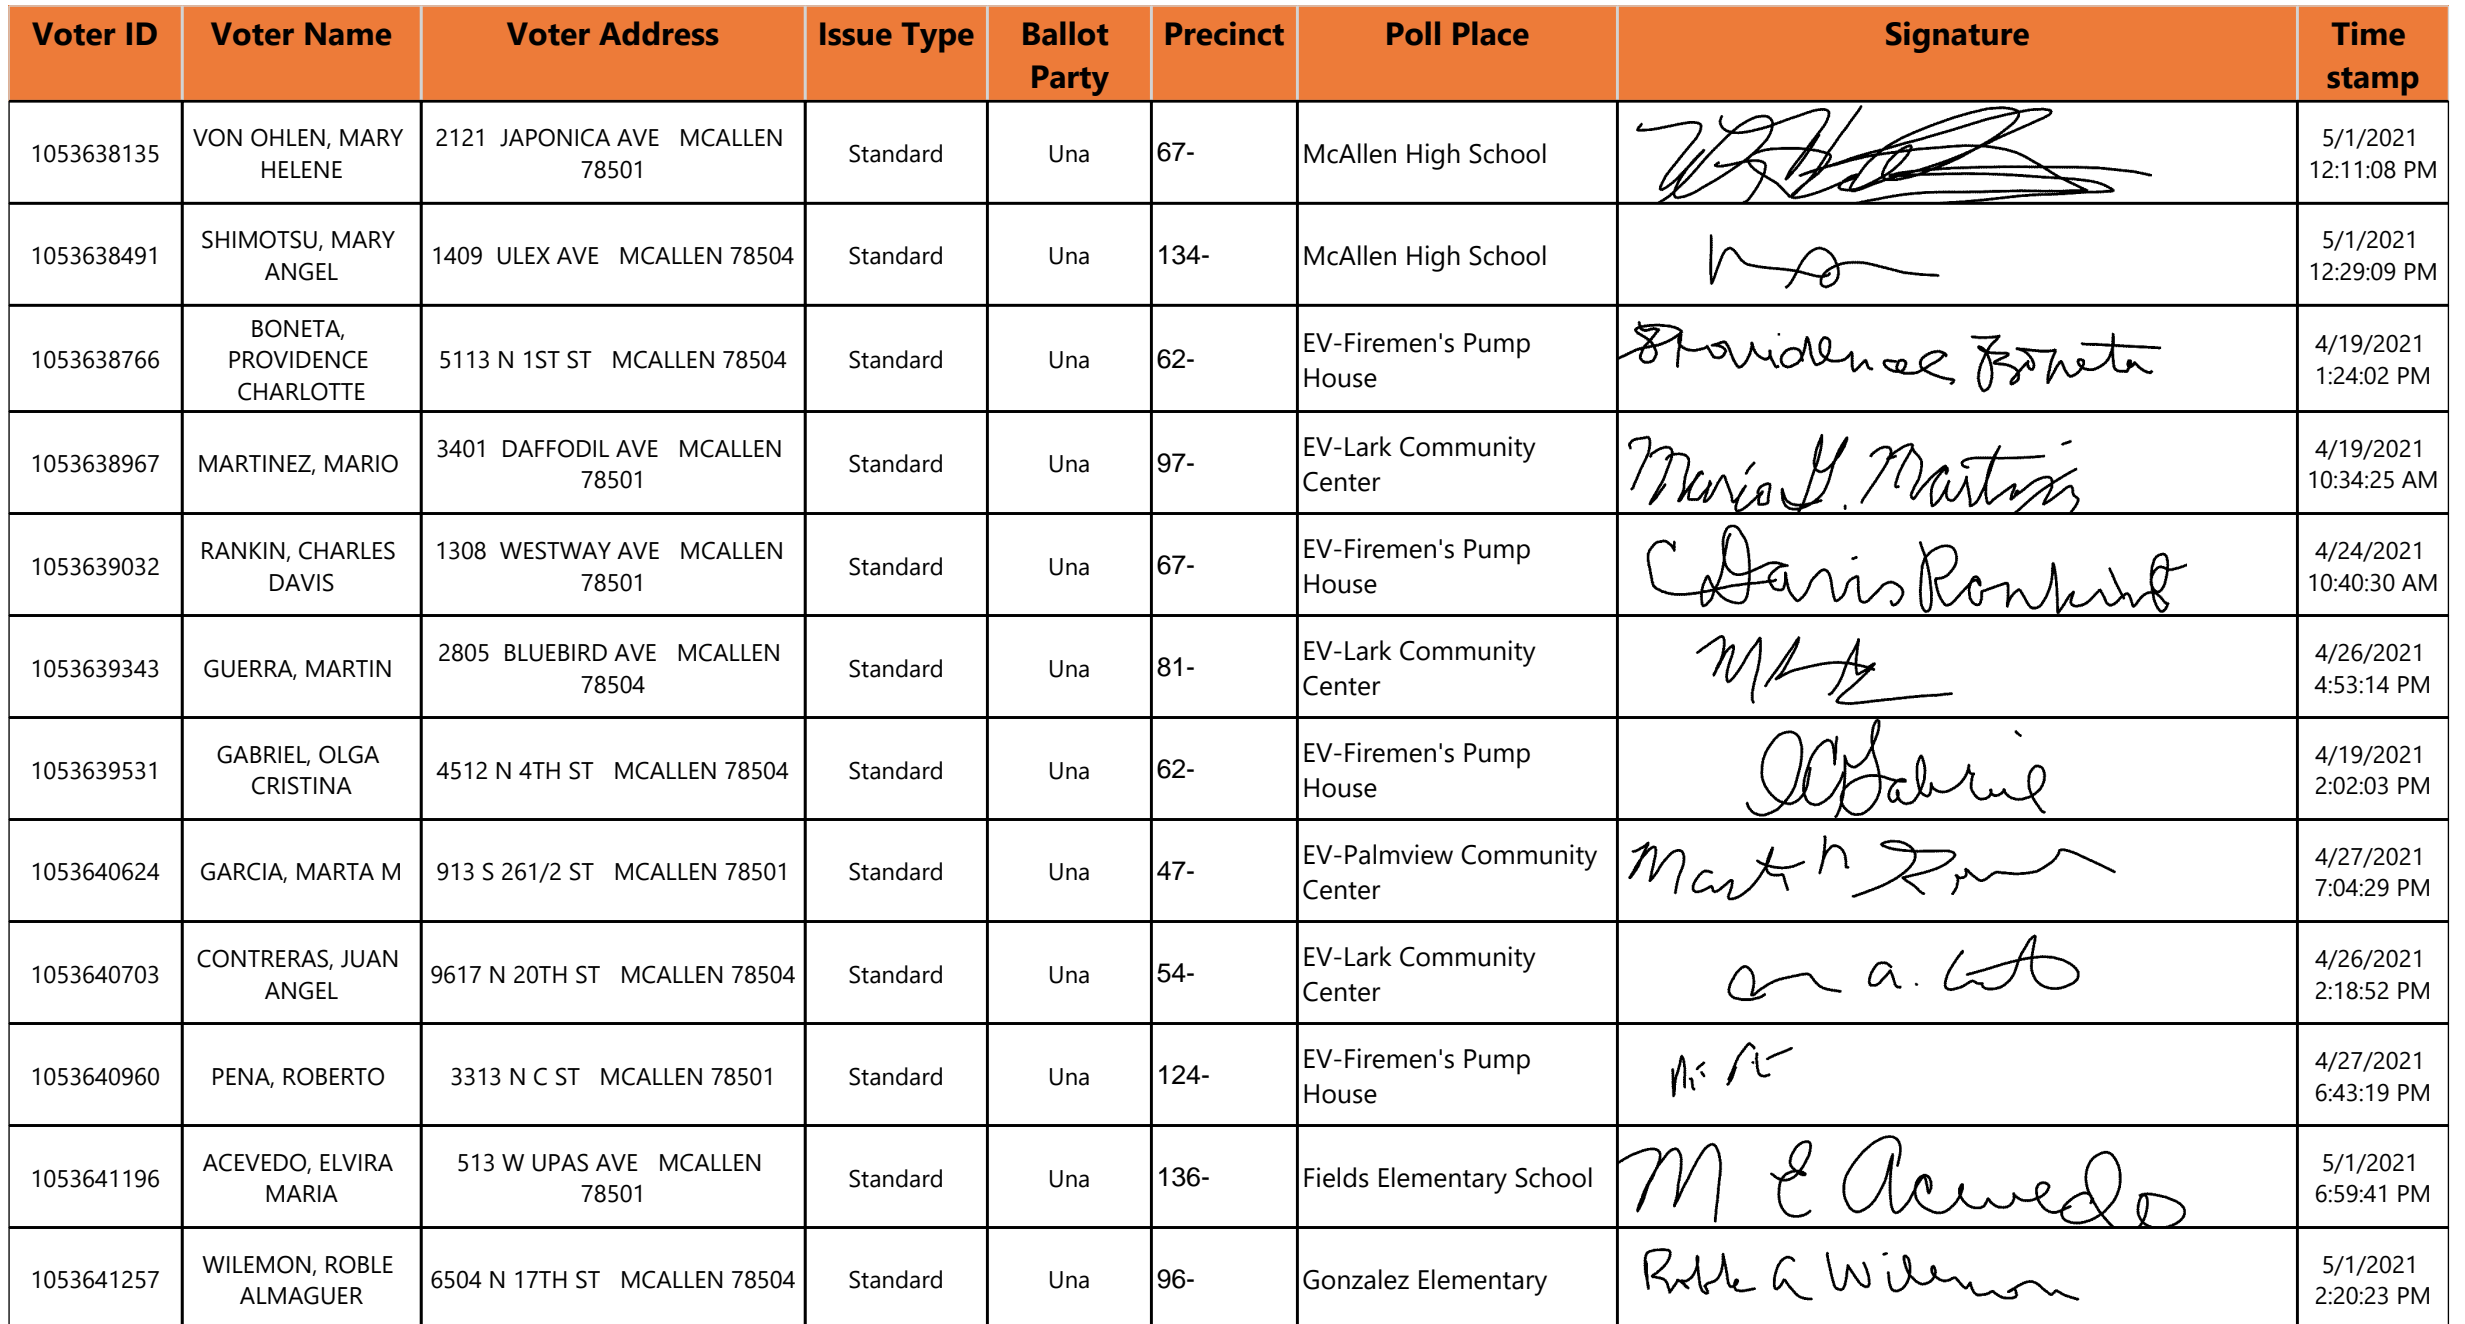 Voter ID Voter Name Voter Address Issue Type Ballot Party Precinct Poll Place Signature Time stamp
1053638135 VON OHLEN, MARY HELENE 2121 JAPONICA AVE MCALLEN 78501 Standard Una 67- McAllen High School 5/1/2021 12:11:08 PM
1053638491 SHIMOTSU, MARY ANGEL 1409 ULEX AVE MCALLEN 78504 Standard Una 134- McAllen High School 5/1/2021 12:29:09 PM
1053638766 BONETA, PROVIDENCE CHARLOTTE 5113 N 1ST ST MCALLEN 78504 Standard Una 62- EV-Firemen's Pump House Providence Boneta 4/19/2021 1:24:02 PM
1053638967 MARTINEZ, MARIO 3401 DAFFODIL AVE MCALLEN 78501 Standard Una 97- EV-Lark Community Center Mario G. Martinez 4/19/2021 10:34:25 AM
1053639032 RANKIN, CHARLES DAVIS 1308 WESTWAY AVE MCALLEN 78501 Standard Una 67- EV-Firemen's Pump House C Davis Rankin 4/24/2021 10:40:30 AM
1053639343 GUERRA, MARTIN 2805 BLUEBIRD AVE MCALLEN 78504 Standard Una 81- EV-Lark Community Center 4/26/2021 4:53:14 PM
1053639531 GABRIEL, OLGA CRISTINA 4512 N 4TH ST MCALLEN 78504 Standard Una 62- EV-Firemen's Pump House OC Gabriel 4/19/2021 2:02:03 PM
1053640624 GARCIA, MARTA M 913 S 261/2 ST MCALLEN 78501 Standard Una 47- EV-Palmview Community Center 4/27/2021 7:04:29 PM
1053640703 CONTRERAS, JUAN ANGEL 9617 N 20TH ST MCALLEN 78504 Standard Una 54- EV-Lark Community Center 4/26/2021 2:18:52 PM
1053640960 PENA, ROBERTO 3313 N C ST MCALLEN 78501 Standard Una 124- EV-Firemen's Pump House 4/27/2021 6:43:19 PM
1053641196 ACEVEDO, ELVIRA MARIA 513 W UPAS AVE MCALLEN 78501 Standard Una 136- Fields Elementary School M E Acevedo 5/1/2021 6:59:41 PM
1053641257 WILEMON, ROBLE ALMAGUER 6504 N 17TH ST MCALLEN 78504 Standard Una 96- Gonzalez Elementary Roble A Wilemon 5/1/2021 2:20:23 PM